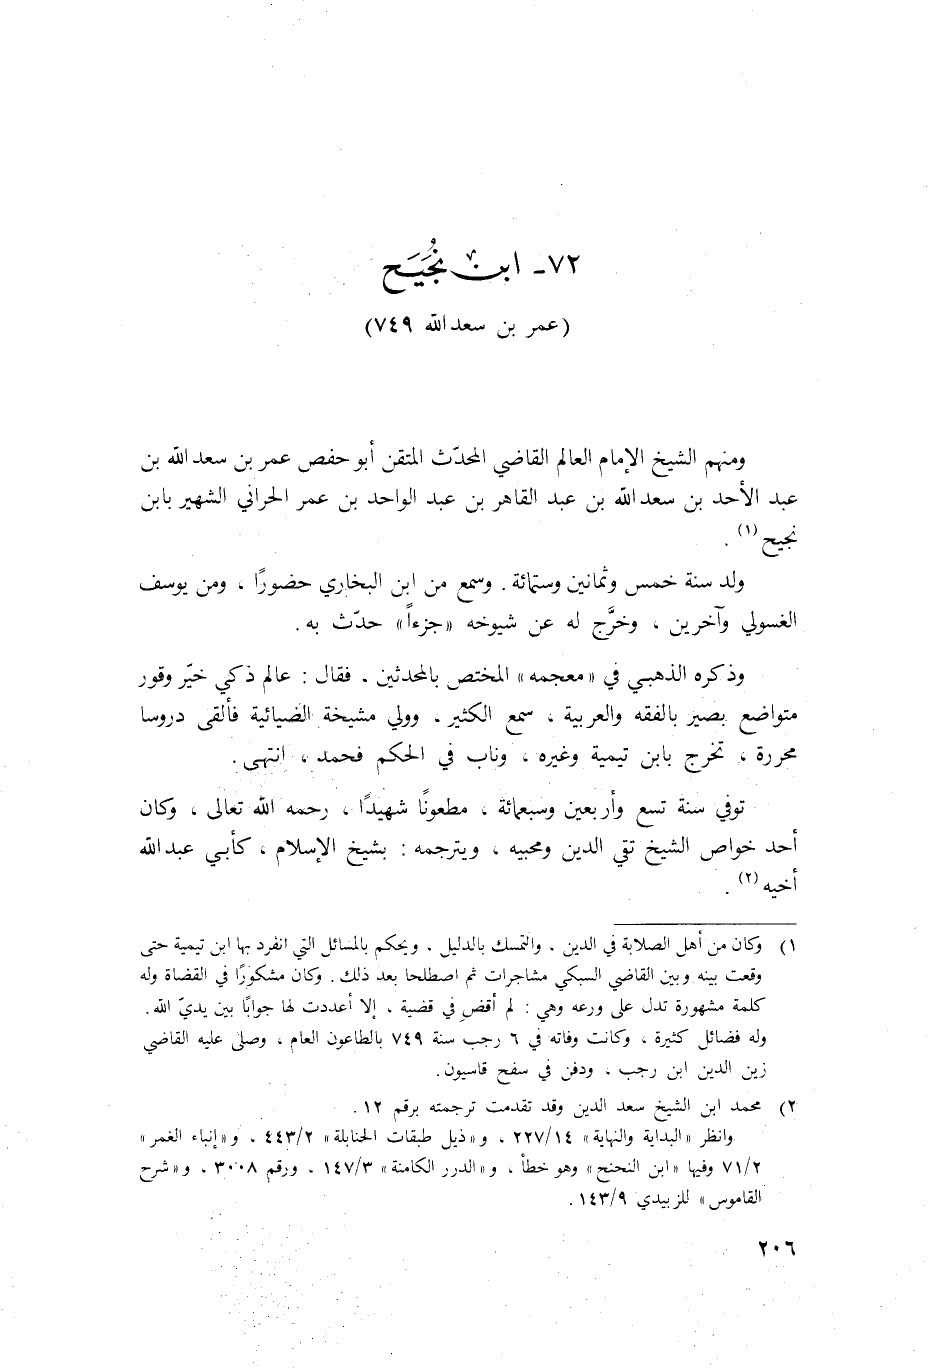 ٧٢ـ ابن نُجَيح
(عمر بن سعدالله ٧٤٩)
ومنهم الشيخ الإمام العالم القاضي المحدّث المتقن أبو حفص عمر بن سعدالله بن
عبد الأحد بن سعدالله بن عبد القاهر بن عبد الواحد بن عمر الحراني الشهير بابن
نجيح (١) .
ولد سنة خمس وثمانين وستمائة . وسمع من ابن البخاري حضورًا ، ومن يوسف
الغسولي وآخرين ، وخرَّج له عن شيوخه «جزءاً» حدّث به .
وذكره الذهبي في «معجمه» المختص بالمحدثين . فقال : عالم ذكي خيّر وقور
متواضع بصير بالفقه والعربية ، سمع الكثير ، وولي مشيخة الضيائية فألقى دروسا
محررة ، تخرج بابن تيمية وغيره ، وناب في الحكم فحمد ، انتهى .
توفي سنة تسع وأربعين وسبعمائة ، مطعونًا شهيدًا ، رحمه الله تعالى ، وكان
أحد خواص الشيخ تقي الدين ومحبيه ، ويترجمه : بشيخ الإسلام ، كأبي عبدالله
أخيه (٢) .
١) وكان من أهل الصلابة في الدين ، والتمسك بالدليل ، ويحكم بالمسائل التي انفرد بها ابن تيمية حتى
وقعت بينه وبين القاضي السبكي مشاجرات ثم اصطلحا بعد ذلك . وكان مشكورًا في القضاة وله
كلمة مشهورة تدل على ورعه وهي : لم أقضِ في قضية ، إلا أعددت لها جوابًا بين يديّ الله .
وله فضائل كثيرة ، وكانت وفاته في ٦ رجب سنة ٧٤٩ بالطاعون العام ، وصلى عليه القاضي
زين الدين ابن رجب ، ودفن في سفح قاسيون .
٢) محمد ابن الشيخ سعد الدين وقد تقدمت ترجمته برقم ١٢ .
وانظر «البداية والنهاية» ٢٢٧/١٤ ، و«ذيل طبقات الحنابلة» ٤٤٣/٢ ، و«إنباء الغمر»
٧١/٢ وفيها «ابن النحنح» وهو خطأ ، و«الدرر الكامنة» ١٤٧/٣ ، ورقم ٣٠٠٨ ، و«شرح
القاموس» للزبيدي ١٤٣/٩ .
٢٠٦